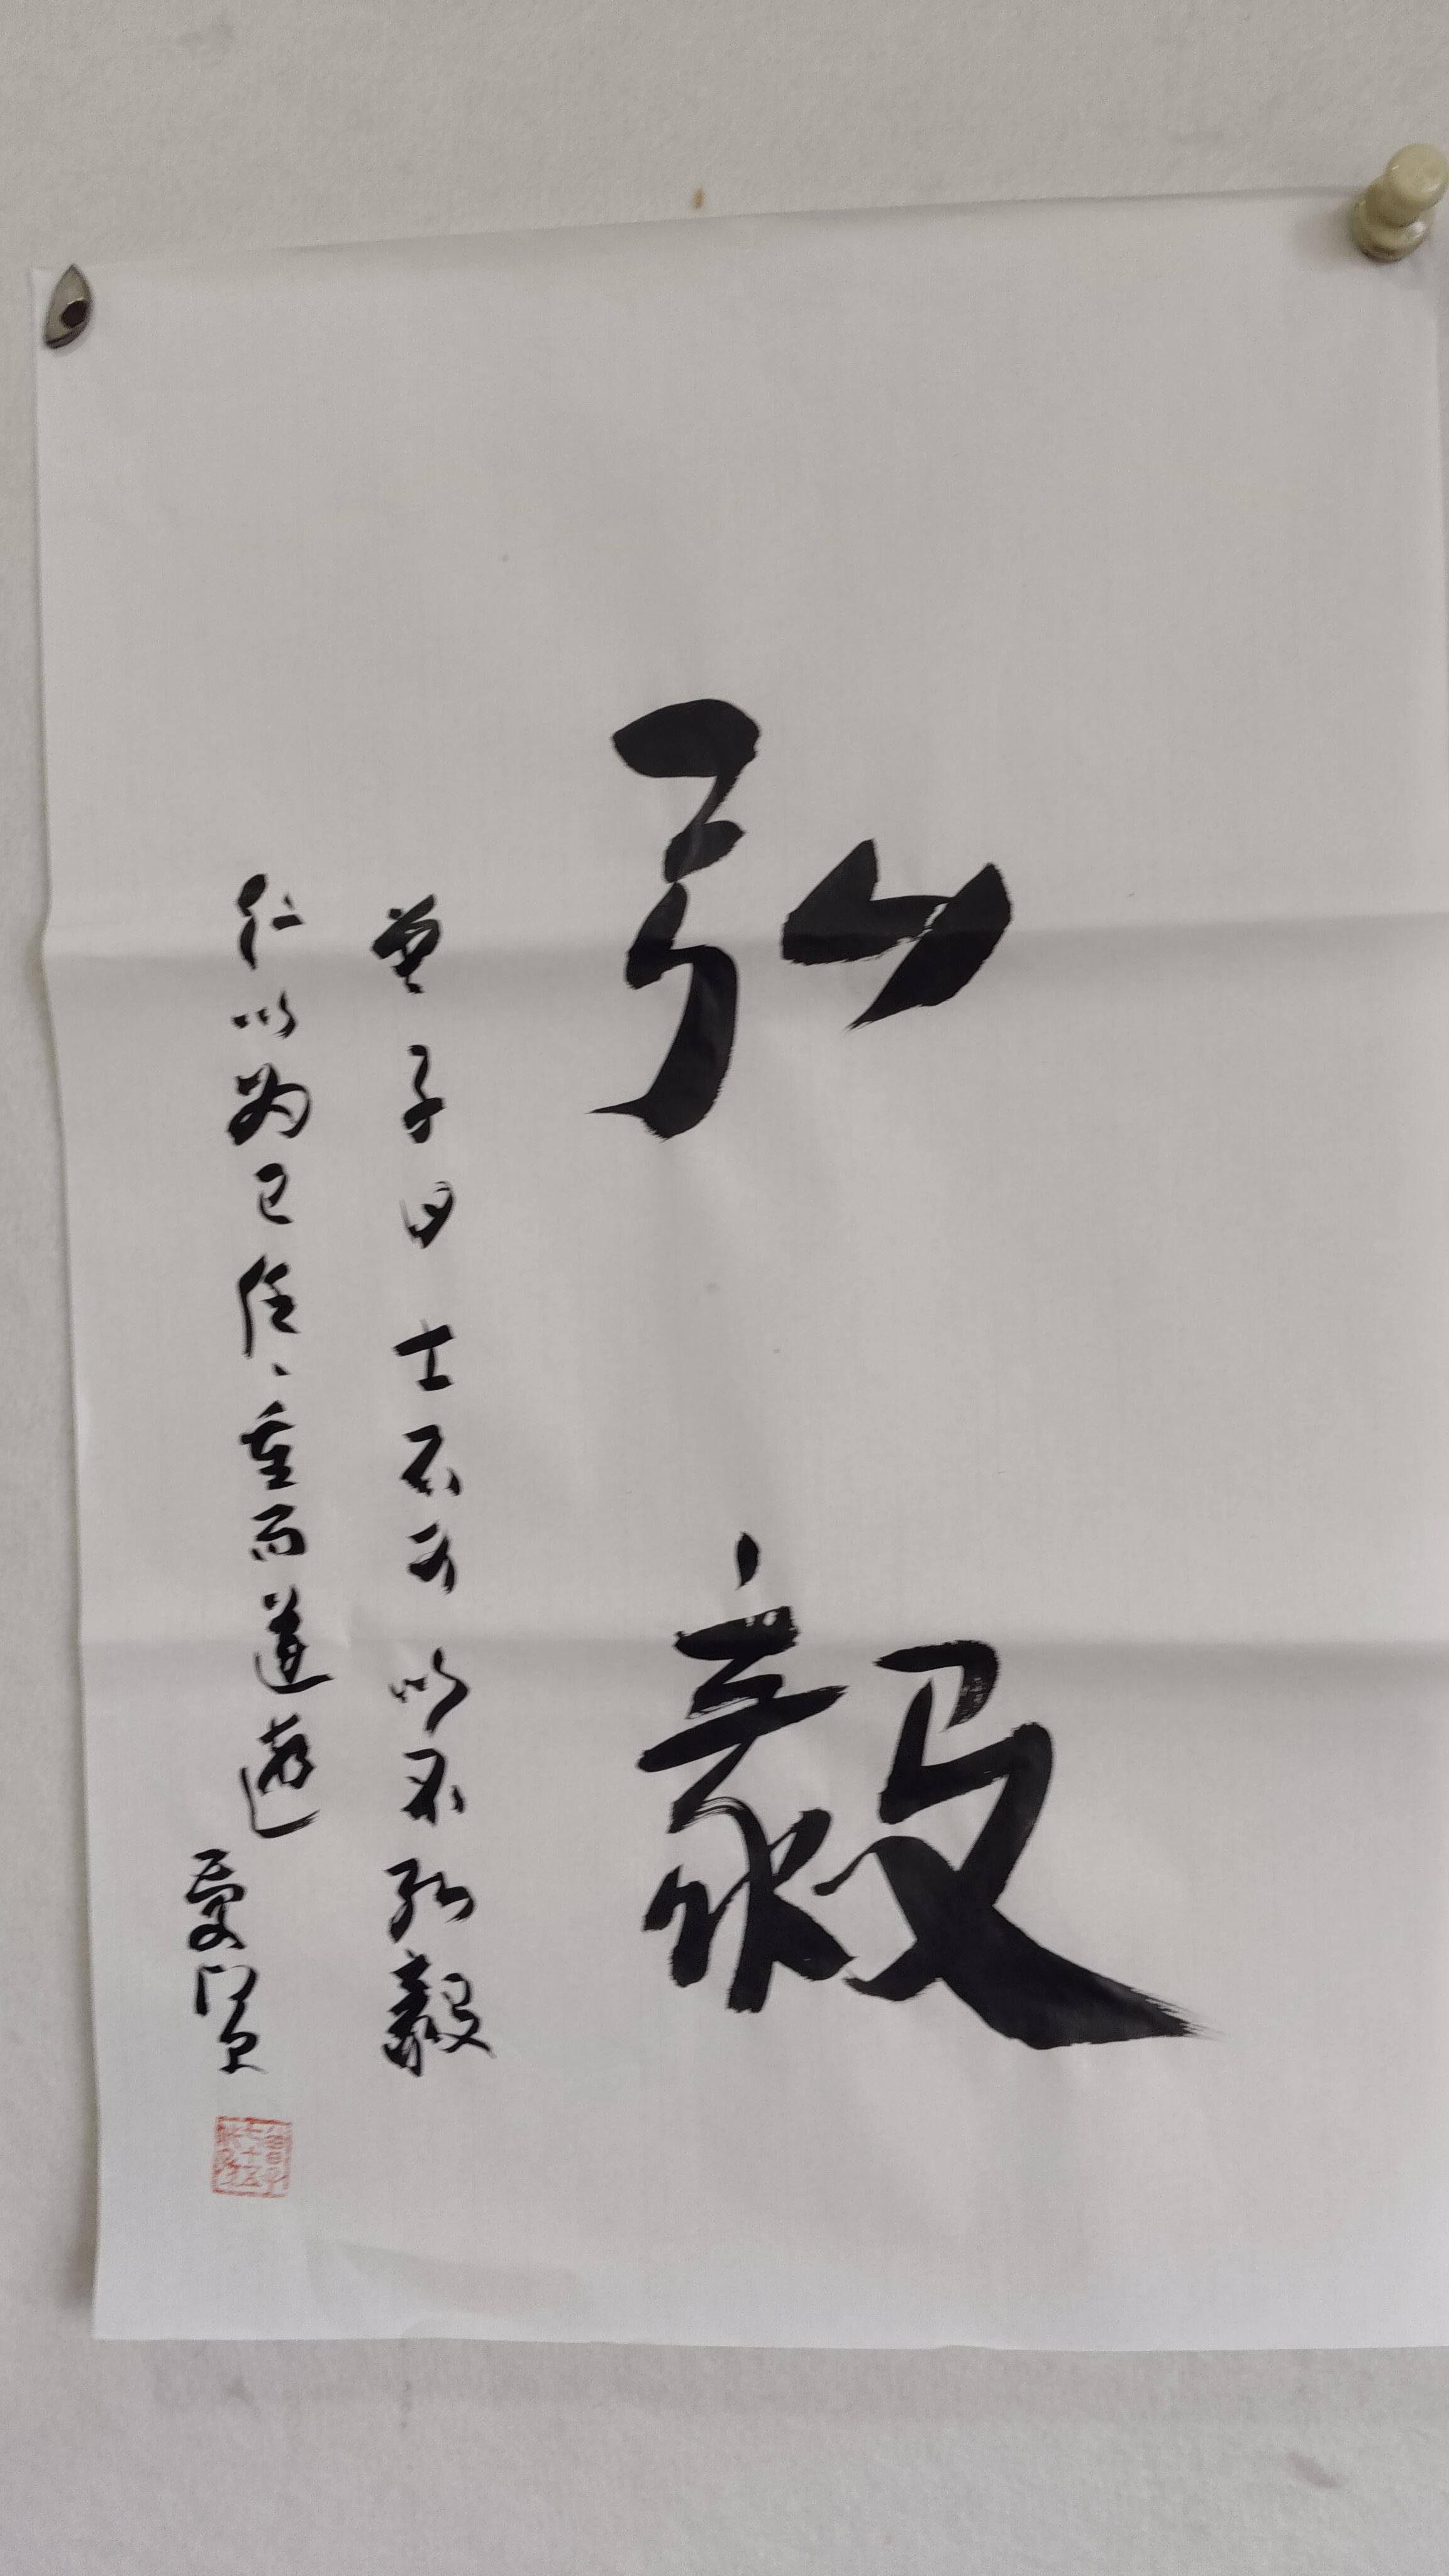 弘毅
曾子曰士不可以不弘毅
仁以为己任任重而道远